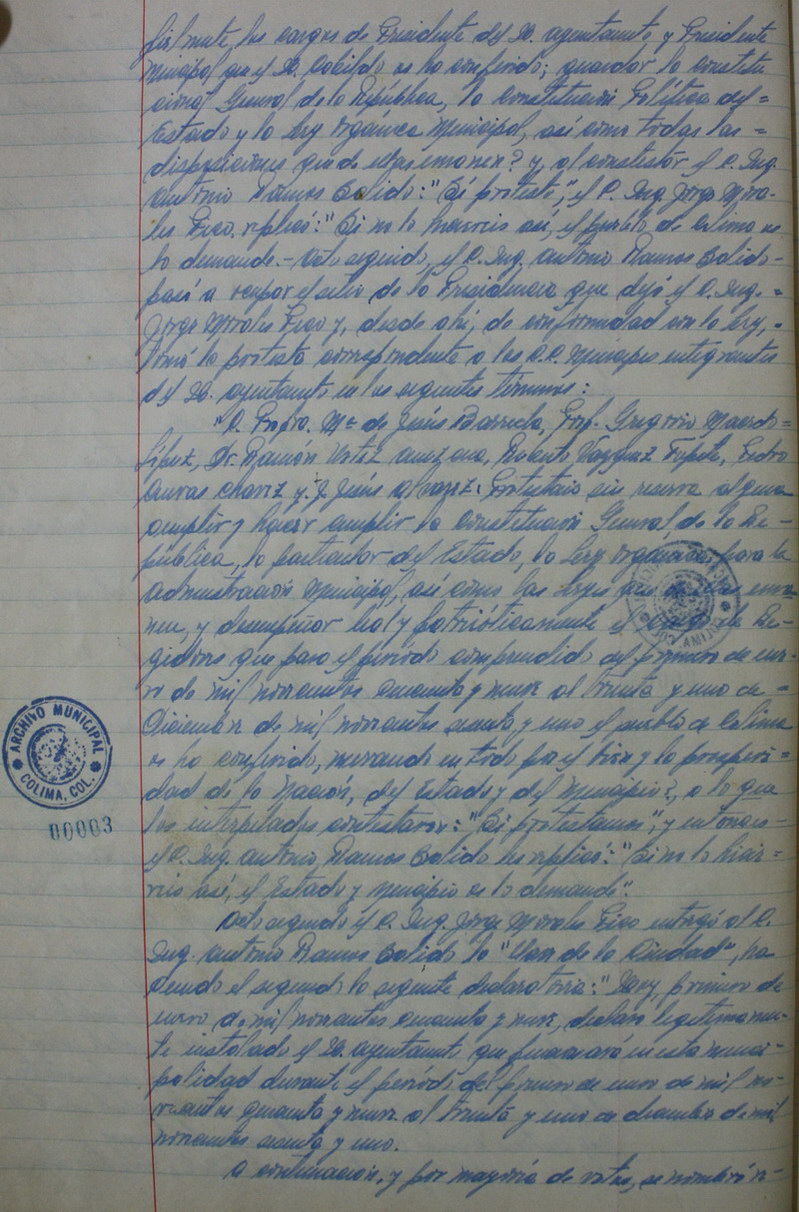 fielmente los cargos de Presidente del H. Ayuntamiento y Presidente
Municipal que el H. Cabildo os ha conferido; guardar la Constitu
cional General de la República, la Constitución Política del=
Estado y la Ley Orgánica Municipal, así como todas las =
disposiciones que de ellas emanen? y, al contestar el C. Ing.
Antonio Ramos Salido: "Sí protesto", el C. Ing. Jorge Mora-
les Lico, replicó: "Si no lo hiciereis así, el pueblo de Colima os
lo demande.- Acto seguido, el C. Ing. Antonio Ramos Salido-
pasó a ocupar el sitio de la Presidencia que dejó el C. Ing.=
Jorge Morales Lico y, desde ahí, de conformidad con la Ley,-
tomó la protesta correspondiente a los C.C. Munícipes integrantes
del H. Ayuntamiento en los siguientes términos:
"C. Profra. Ma. de Jesús Barreda, Prof. Gregorio Macedo=
López, Dr. Ramón Urtiz Anzana, Roberto Vázquez Tapete, Pedro
Chávez y J. Jesús Protestáis sin reserva alguna
cumplir y hacer cumplir la Constitución General de la Re-
pública, la particular del Estado, la Ley Orgánica para la
administración Municipal, así como las Leyes que de ellas ema-
nen, y desempeñar leal y patrióticamente el cargo de Re-
gidores que para el período comprendido del primero de ene-
ro de mil novecientos cincuenta y nueve al treinta y uno de=
Diciembre de mil novecientos sesenta y uno el pueblo de Colima
os ha conferido, mirando en todo por el bien y la prosperi=
dad de la Nación, del Estado y del Municipio?, a lo que
los interpelados contestaron: "Sí protestamos", y entonces-
el C. Ing. Antonio Ramos Salido les replicó: "Si no lo hicie=
reis así, el Estado y Municipio os lo demande".
Acto seguido el C. Ing. Jorge Morales Lico entregó al C.
Ing. Antonio Ramos Salido la "Llave de la Ciudad", ha
ciendo el segundo la siguiente declaratoria: "Hoy, primero de
enero de mil novecientos cincuenta y nueve, declaro legítimamen-
te instalado el H. Ayuntamiento que funcionará en esta munici-
palidad durante el período del primero de enero de mil no-
vecientos cincuenta y nueve al treinta y uno de diciembre de mil
novecientos sesenta y uno.
A continuación, y por mayoría de votos, se nombró
ARCHIVO MUNICIPAL
COLIMA, COL.
00003